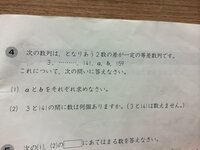 4 次の数列は，となりあう2数の差が一定の等差数列です。
3, ………, 141, a, b, 159
これについて，次の問いに答えなさい。
(1) aとbをそれぞれ求めなさい。
(2) 3と141の間に数は何個ありますか。(3と141は数えません。)
5 次の(1), (2)の□にあてはまる数を答えなさい。